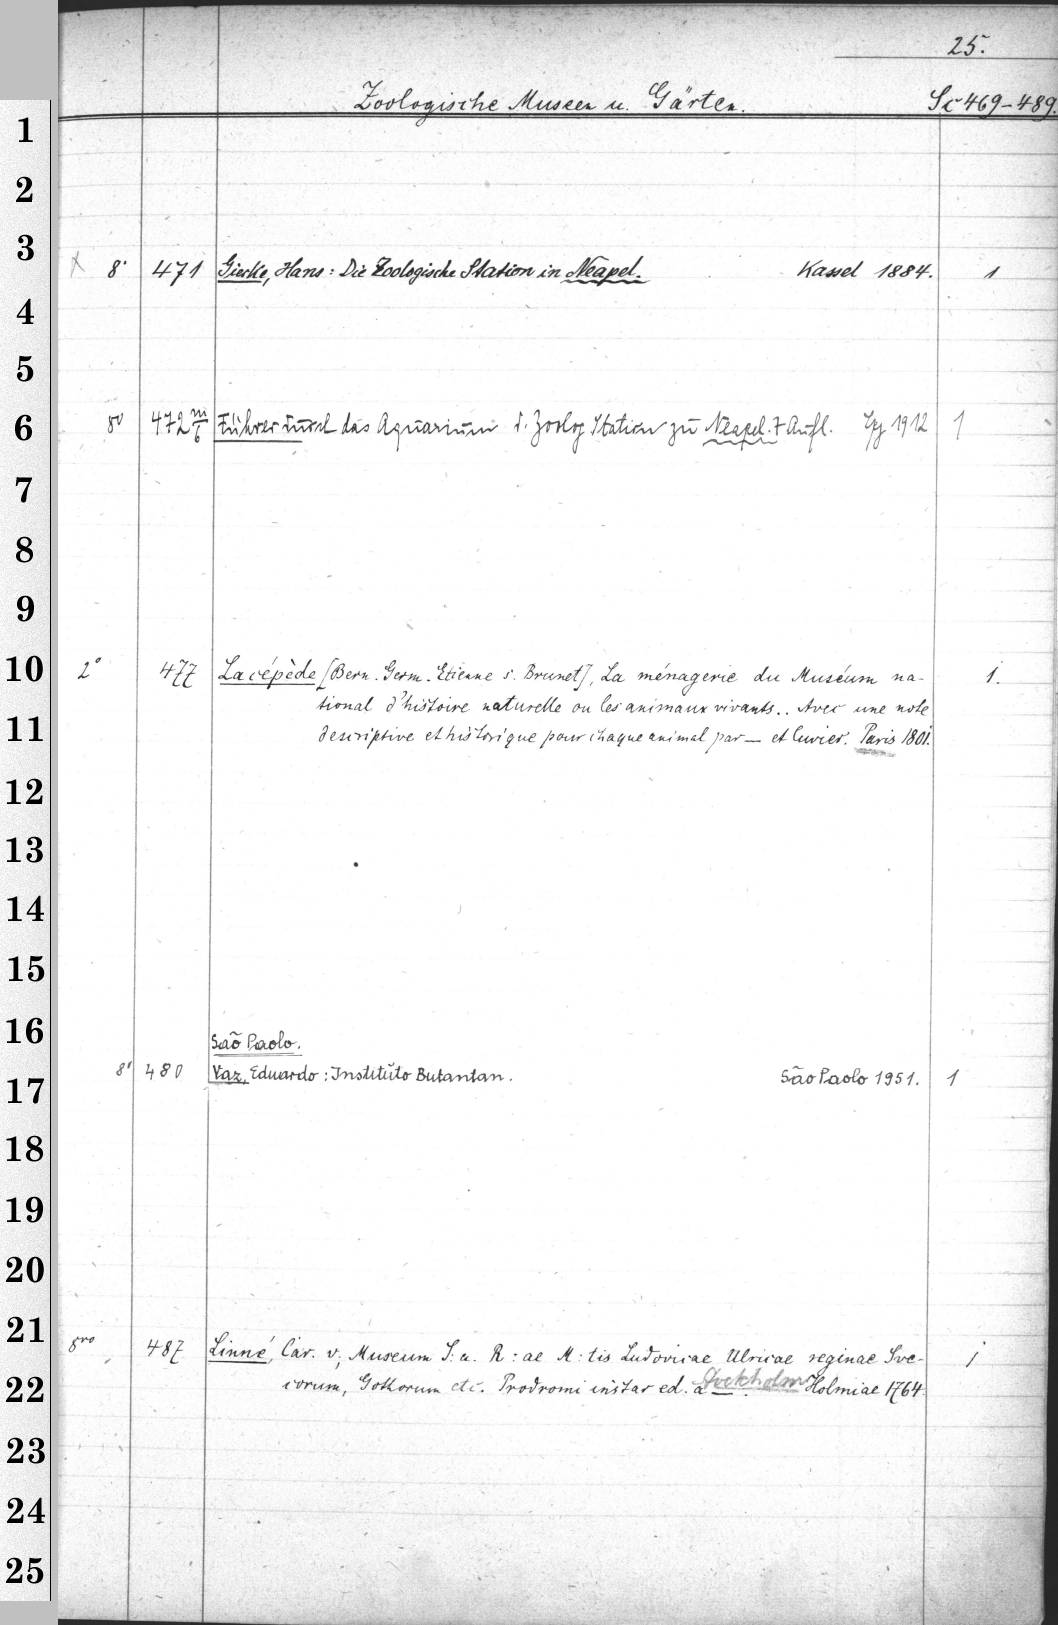 25.
Zoologische Museen u. Gärten. Sc 469-489.
1
2
3
8° 471 Gierke, Hans: Die Zoologische Station in Neapel. Kassel 1884. 1
4
5
6
8° 472 m/6 Führer durch das Aquarium d. Zoolog Station zu Neapel. 7 Aufl. Lpz 1912 1
7
8
9
10
2° 477 Lacépède [Bern. Germ. Etienne s. Brunet], La ménagerie du Muséum na- 1.
tional d'histoire naturelle ou les animaux vivants.. Avec une note
11
descriptive et historique pour chaque animal par — et Cuvier. Paris 1801.
12
13
14
15
16
São Paolo.
17
8° 480 Vaz, Eduardo: Instituto Butantan. São Paolo 1951. 1
18
19
20
21
8vo 487 Linné, Car. v., Museum S:a. R:ae M:tis Ludovicae Ulricae reginae Sve- 1
22
corum, Gothorum etc. Prodromi instar ed. a — . Stockholm Holmiae 1764.
23
24
25